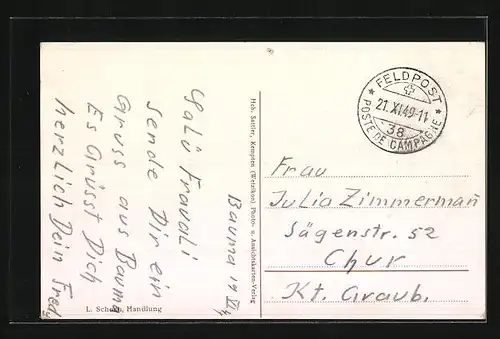 Bauma 19
Salü Frauali
sende Dir ein
Gruss aus Bauma
Es Grüsst Dich
herzlich Dein Fredy
L. Schoch, Handlung
Hch. Sattler, Kempten (Wetzikon) Photo- u. Ansichtskarten-Verlag
FELDPOST
21.XI.49-11
38
POSTE DE CAMPAGNE
Frau
Julia Zimmermañ
Sägenstr. 52
Chur
Kt. Graub.